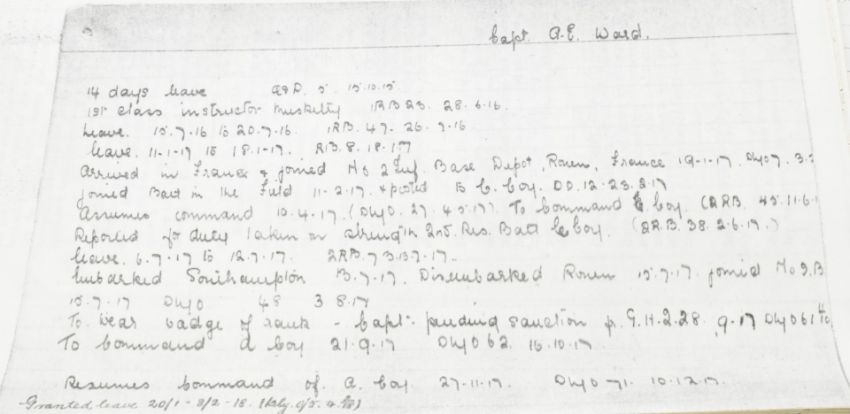 Capt. A.E. Ward.
14 days leave 5 15.10.15
1st class instructor musketry IRB 23. 28.6.16.
Leave. 15.7.16 to 20.7.16. IRB. 47. 26.7.16
leave. 11-1-17 to 18.1-17. RB. 8. 18.1.17
Arrived in France & joined No 2 Inf. Base Depot, Rouen, France 19-1-17.
joined Batt in the Field 11-2-17. & posted to C. Coy. DO. 12. 23.2.17
Assumes command 10.4.17. 27. 4.5.17). To command Coy. 45. 11.6.1
Reported for duty taken on strength 2nd. Res. Batt Coy. 38. 2.6.17.)
leave. 6.7.17 to 12.7.17. 2RB. 7
Embarked Southampton 7.17. Disembarked Rouen 15.7.17. joined No
15.7.17 48 3 8.17
To wear badge of rank - Capt. pending sanction G.H.2. 28. 9.17
To command d Coy 21.9.17 62. 10.17
Resumes command of. A. Coy. 27.11.17. 71. 10.12.17.
Granted leave 20/1 - 3/2 - 18.